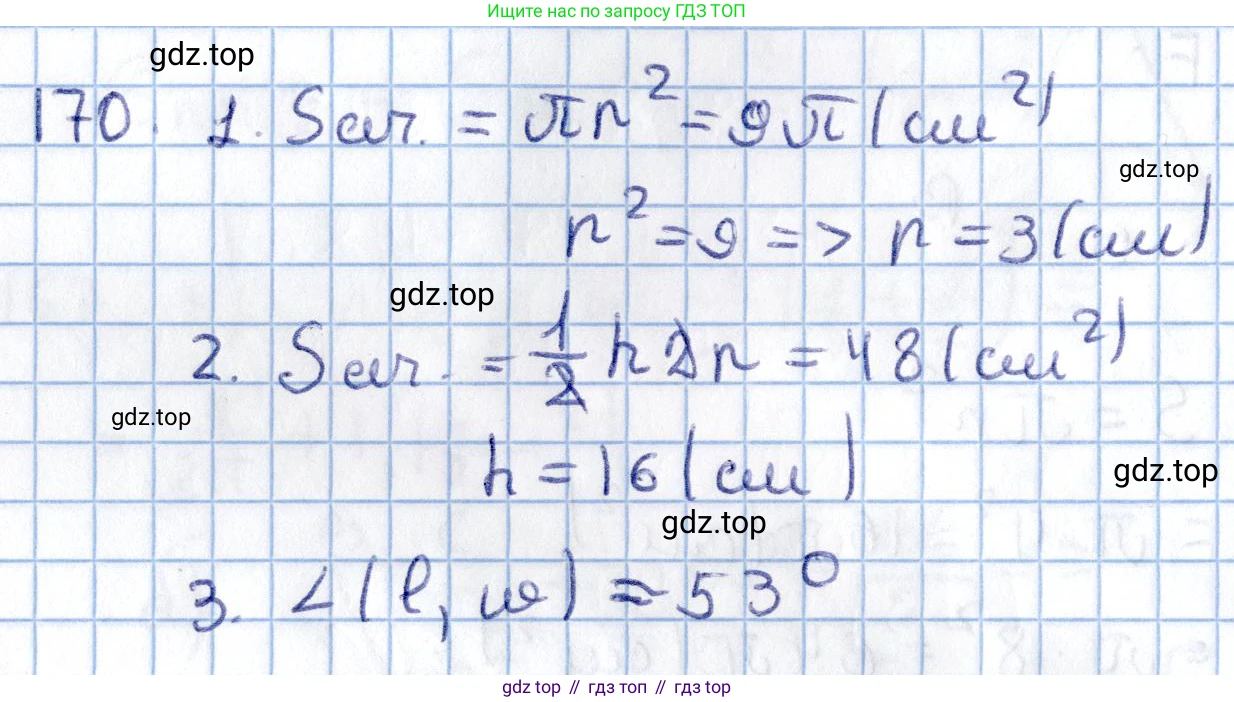 Ищите нас по запросу ГДЗ ТОП
gdz.top
170. 1. Sсеч. = πr² = 9π (см²)
gdz.top
r² = 9 => r = 3 (см)
gdz.top
2. Sсеч. = 1/2 h 2r = 48 (см²)
gdz.top
h = 16 (см)
gdz.top
gdz.top
3. ∠(l, ) ≈ 53°
gdz top // гдз топ // гдз top